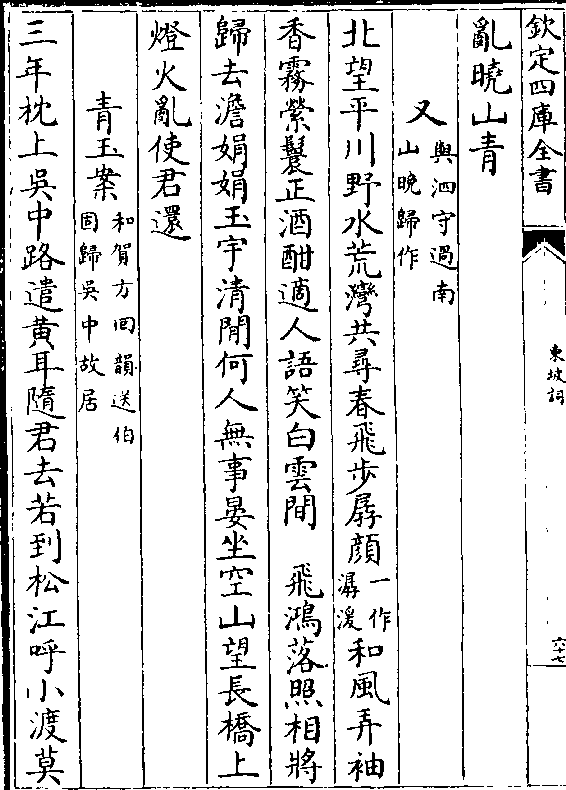 欽定四庫全書
東坡詞
六十七
亂曉山青
又 與泗守過南
山晚歸作
北望平川野水荒灣共尋春飛步孱顔一作潺湲和風弄袖
香霧縈鬟正酒酣適人語笑白雲間　飛鴻落照相將
歸去澹娟娟玉宇清閒何人無事晏坐空山望長橋上
燈火亂使君還
青玉案 和賀方回韻送伯
固歸吳中故居
三年枕上吳中路遣黃耳隨君去若到松江呼小渡莫